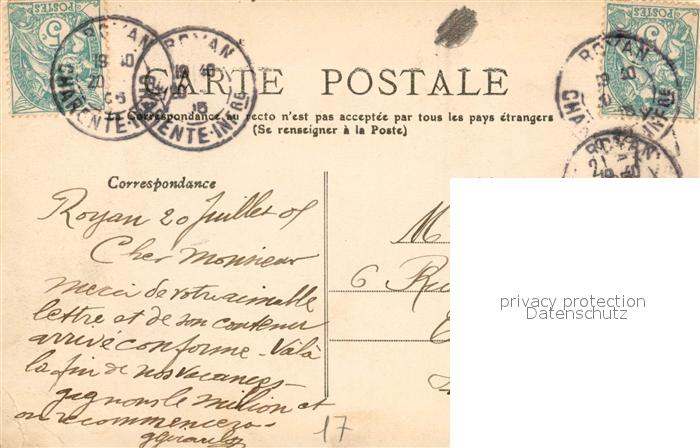 POSTES 5
POSTES 5
ROYAN
19 40
20
05
CHARENTE-INFRE
ROYAN
19 40
20
05
ROYAN
19 40
ROYAN
21
CARTE POSTALE
La Correspondance au recto n'est pas acceptée par tous les pays étrangers
(Se renseigner à la Poste)
Correspondance
Royan 20 Juillet 05
Cher Monsieur
merci de votre aimable
lettre et de son contenu
arrivé conforme - Voilà
la fin de nos vacances -
gagnons le million et
on recommencera -
M
6 Ru
17
privacy protection
Datenschutz